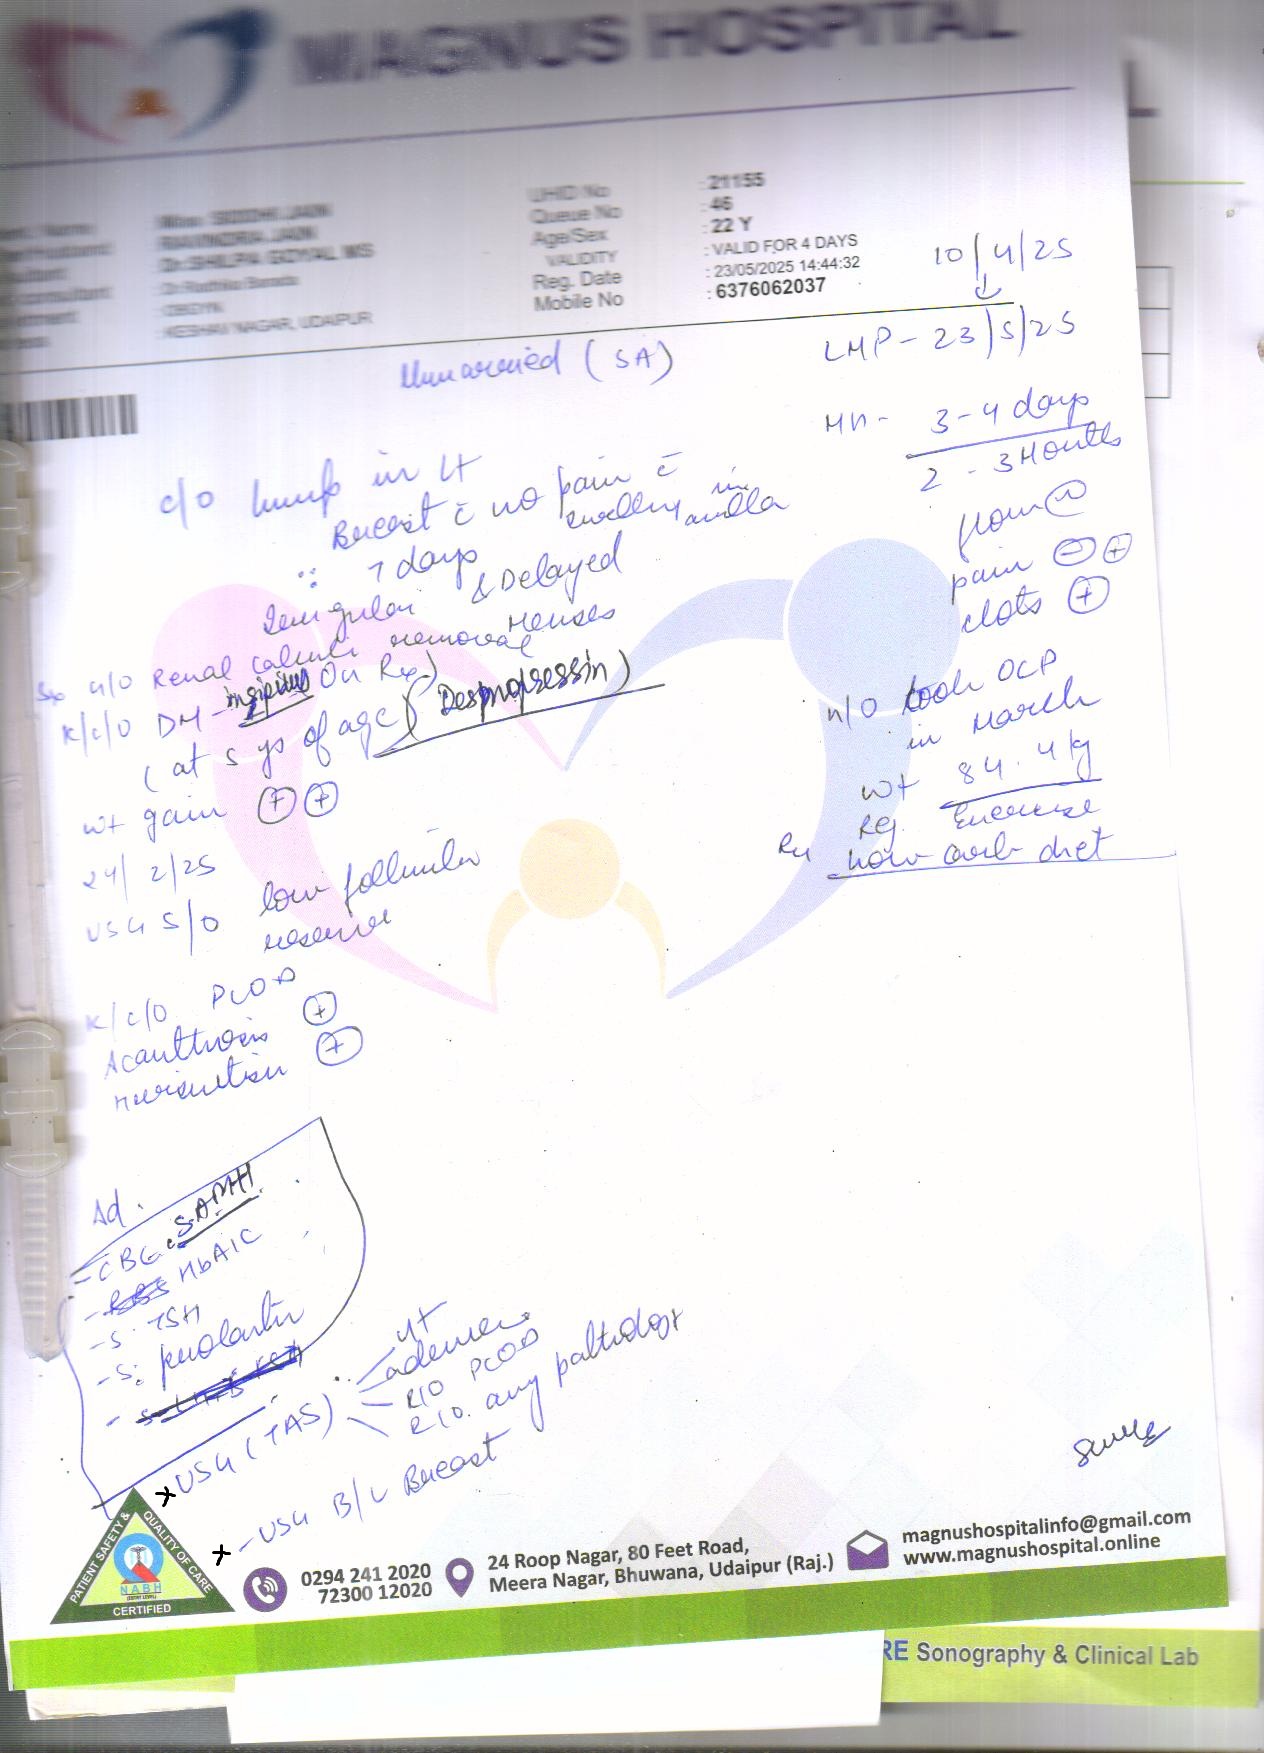 MAGNUS HOSPITAL
UHID No : 21155
Queue No : 46
Age/Sex : 22 Y
VALIDITY : VALID FOR 4 DAYS
Reg. Date : 23/05/2025 14:44:32
Mobile No : 6376062037
Miss. SIDDHI JAIN
RAVINDRA JAIN
Dr.SHILPA GOYAL MS
OBGYN
KESHAV NAGAR, UDAIPUR
10/4/25
LMP - 23/5/25
Unmarried (SA)
MH - 3-4 days
2 - 3 Months
flow
pain - +
clots +
c/o lump in Lt
Breast c no pain c
swelling in axilla
7 days
Irregular & Delayed
Menses
H/O Renal calculi removal
K/c/o DM - insipidus On Rx)
(at 5 ys of age (Desmopressin)
wt gain + +
24/2/25
USG S/O low follicular
reserve
K/c/O PCOD
Acanthosis +
Hirsutism +
H/O took OCP
in March
wt 84.4 kg
Reg. Exercise
low carb diet
Ad.
- CBC. S.AMH
- HbA1C
- S. TSH
- S. prolactin
x USG (TAS)
ut
adenexa
R/O PCOD
R/O. any pathology
x - USG B/L Breast
PATIENT SAFETY & QUALITY OF CARE
NABH
(ENTRY LEVEL)
CERTIFIED
0294 241 2020
72300 12020
24 Roop Nagar, 80 Feet Road,
Meera Nagar, Bhuwana, Udaipur (Raj.)
magnushospitalinfo@gmail.com
www.magnushospital.online
RE Sonography & Clinical Lab